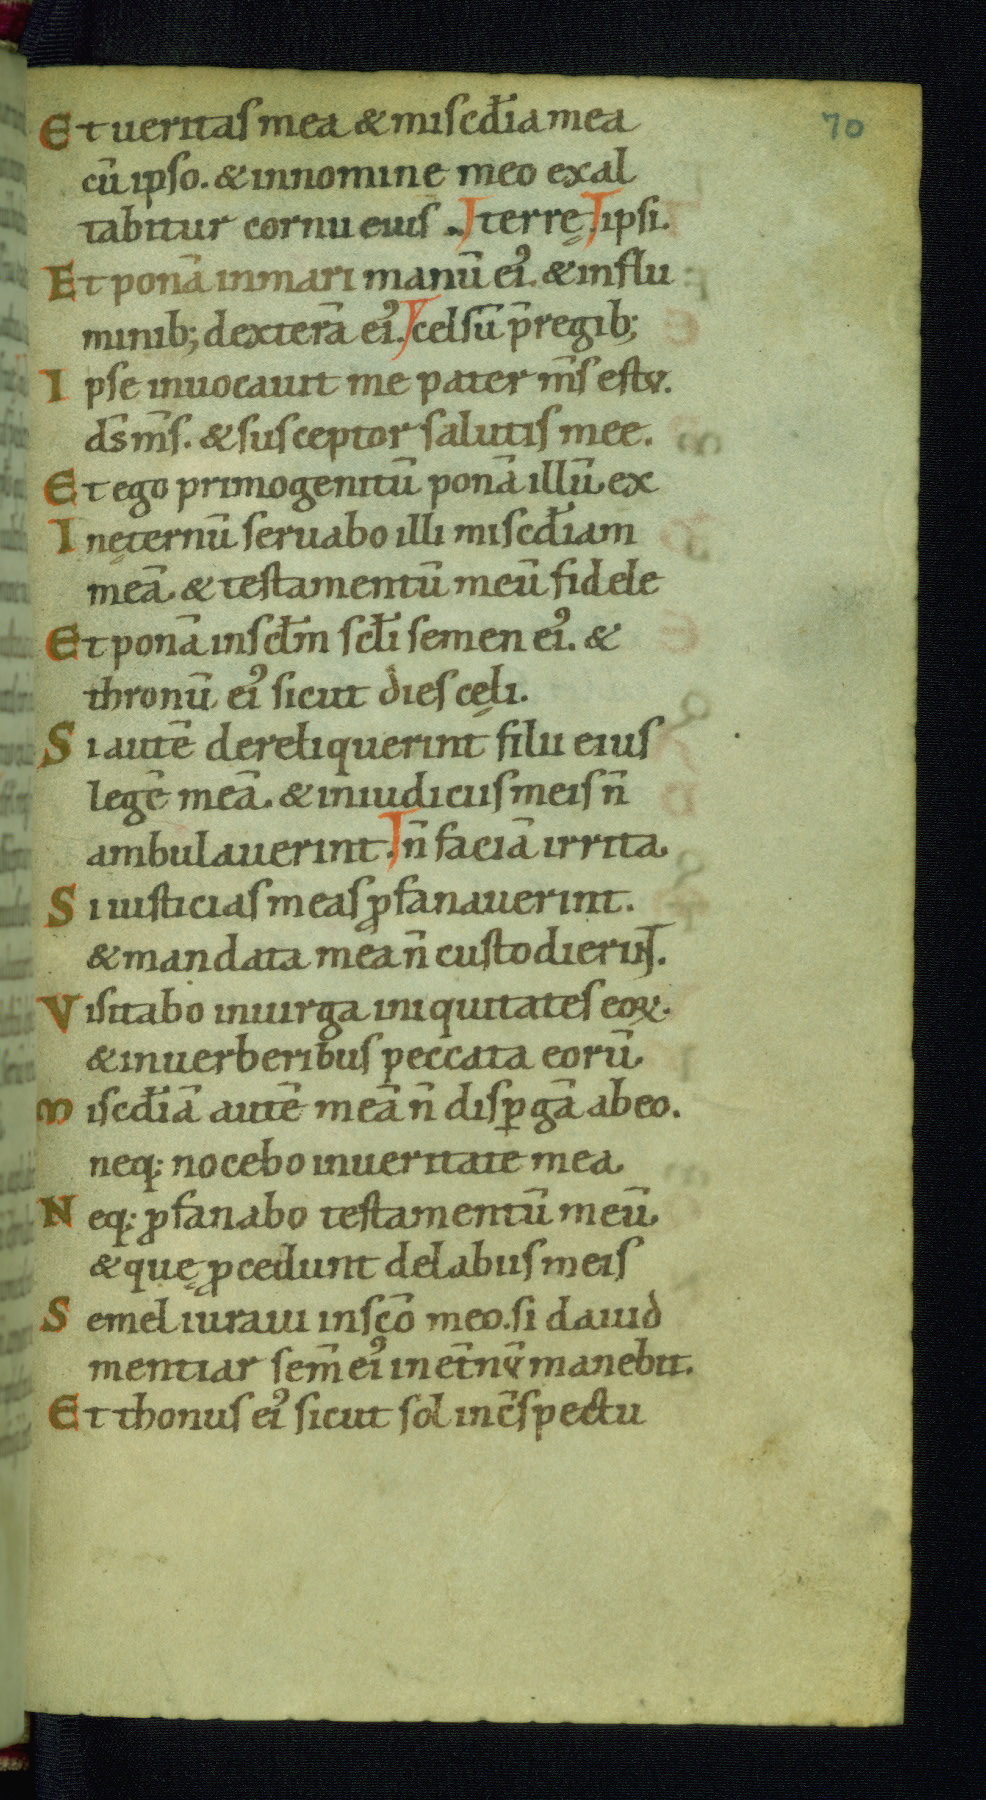 70
Et ueritas mea & miscd̄ia mea
cū ipso. & in nomine meo exal
tabitur cornu eius . terrę. ipsi.
Et ponā in mari manū ei᾿. & in flu
minib; dexterā ei᾿. celsū p̄ regib;
Ipse inuocauit me pater m̄s es tv.
ds̄ m̄s. & susceptor salutis mee.
Et ego primogenitū ponā illū ex
In ęternū seruabo illi miscd̄iam
meā. & testamentū meū fidele
Et ponā in scl̄m scl̄i semen ei᾿. &
thronū ei᾿ sicut dies cęli.
Si autē dereliquerint filii eius
legē meā. & in iudiciis meis n̄
ambulauerint. n̄ faciā irrita
Si iusticias meas ꝓfanauerint.
& mandata mea n̄ custodierint.
Visitabo in uirga iniquitates eoꝝ.
& in uerberibus peccata eorū.
miscd̄iā autē meā n̄ disꝑgā ab eo.
neq; nocebo in ueritate mea
Neq; ꝓfanabo testamentū meū.
& quę ꝓcedunt de labiis meis
Semel iuraui in scō meo. si dauid
mentiar sem̄ ei᾿ in et̄nv̄ manebit.
Et thonus ei᾿ sicut sol in c̄spectu